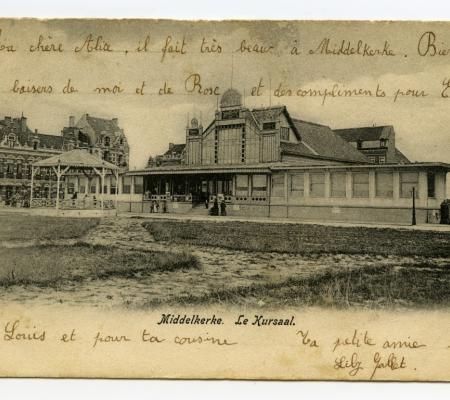 Ma chère Alice, il fait très beau à Middelkerke. Bien
baisers de moi et de Rose et des compliments pour
Middelkerke. Le Kursaal.
Louis et pour ta cousine Ta petite amie
Gallet